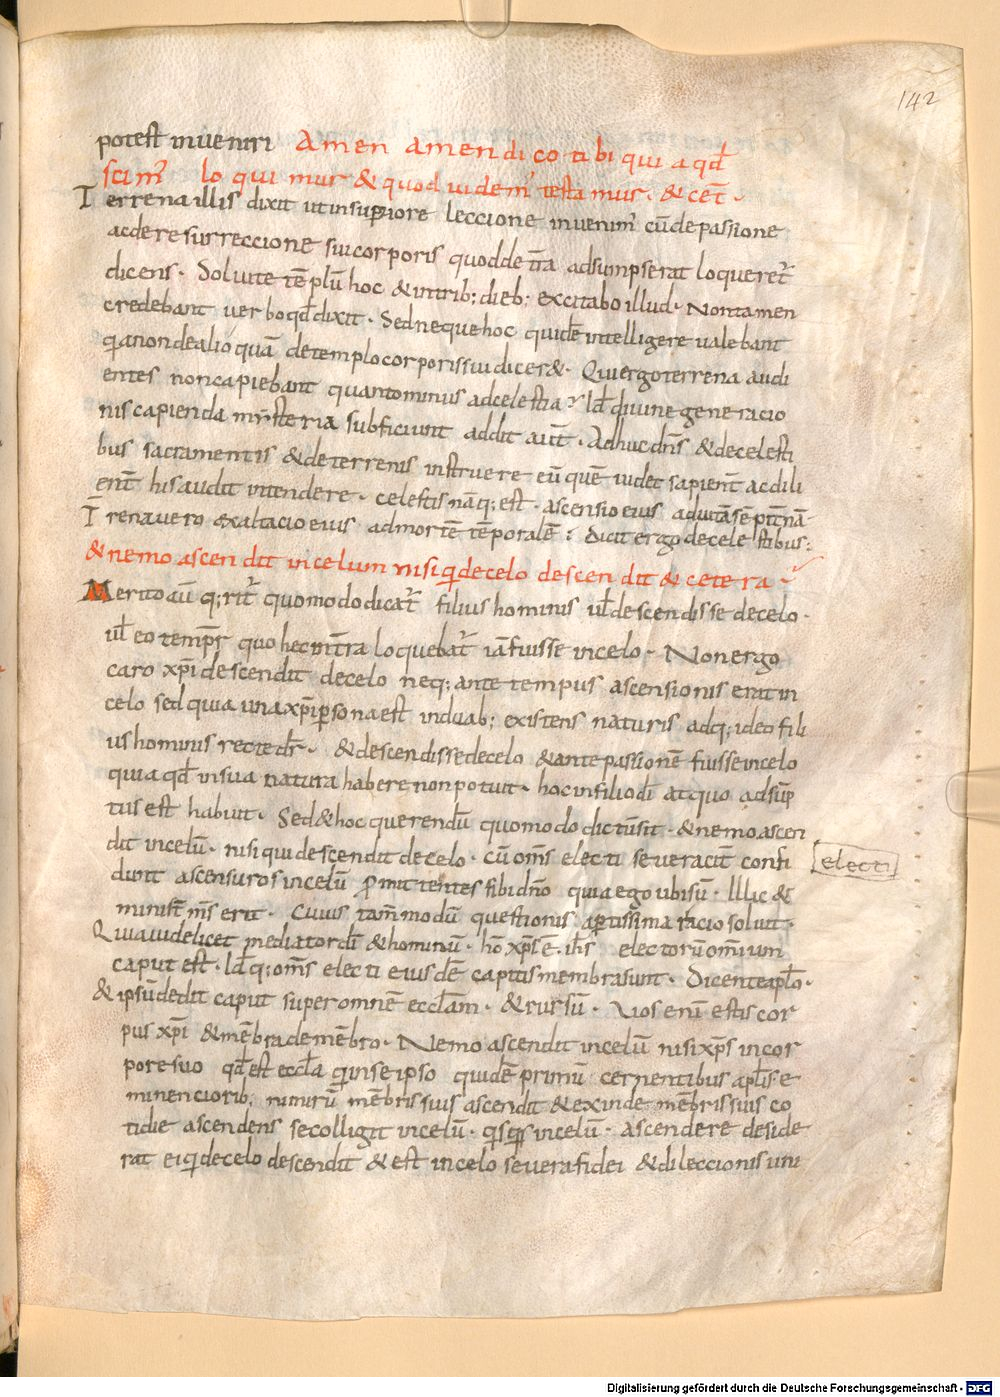 142
potest inueniri Amen amen dico tibi quia qđ
scim' loquimur & quod uidem' testamur. & cet̄.
Terrena illis dixit ut in superiore leccione inuenim' cū de passione
ac de resurreccione sui corporis quod de t̄ra adsumpserat loqueret'
dicens. Soluite tēplū hoc & in trib; dieb; excitabo illud. Non tamen
credebant uerbo qđ dixit. Sed neque hoc quidē intelligere ualebant
quia non de alio quā de templo corporis sui dicer&. Qui ergo terrena audi
entes non capiebant quanto minus ad celestia ł diuine generacio
nis capienda mysteria subficiunt addit aūt. Adhuc dn̄s & de celesti
bus sacramentis & de terrenis instruere eū quē uidet sapient̄ ac dili
ent̄ his audit intendere. celestis nāq; est. ascensio eius ad uitā sēpit̄nā
Trena uero exaltacio eius ad mortē tēporalē: dicit ergo de celestibus:
& nemo ascendit in celum nisi qui de celo descendit & cetera
Merito aū q;rit' quomodo dicat' filius hominis ł descendisse de celo.
ł eo tempr̄ quo hec in t̄ra loquebat' iā fuisse in celo. Non ergo
caro xp̄i descendit de celo neq; ante tempus ascensionis erat in
celo sed quia una xp̄i persona est in duab; existens naturis adq; ideo fili
us hominis recte dr̄. & descendisse de celo & ante passionē fuisse in celo
quia qđ in sua natura habere non potuit. hoc in filio dī a quo adsūp
tus est habuit. Sed & hoc querendū quomodo dictū sit. & nemo ascen
dit in celū. nisi qui descendit de celo. cū om̄s electi se ueracit̄ confi
dunt ascensuros in celū p̄mittentes sibi dn̄o quia ego ubi sū. Illic &
minist̄ m̄s erit. Cuius tam̄ modū questionis apertissima racio soluit.
Quia uidelicet mediator dī & hominū. hō xp̄s ē. ih̄s electorū omnium
caput est. Id q; om̄s electi eiusdē capitis membra sunt. Dicente aplo.
& ipsū dedit caput super omnē eccłam. & rursū. Uos enī estis cor
pus xp̄i & mēbra de mēbro. Nemo ascendit in celū nisi xp̄s in cor
pore suo qđ est eccła qui in se ipso quidē primū cernentibus aplis e
minenciorib; nimirū mēbris suis ascendit & exinde mēbris suis co
tidie ascendens se colligit in celū. in celū. ascendere deside
rat ei qui de celo descendit & est in celo se uera fidei & dileccionis uni
electi
Digitalisierung gefördert durch die Deutsche Forschungsgemeinschaft - DFG